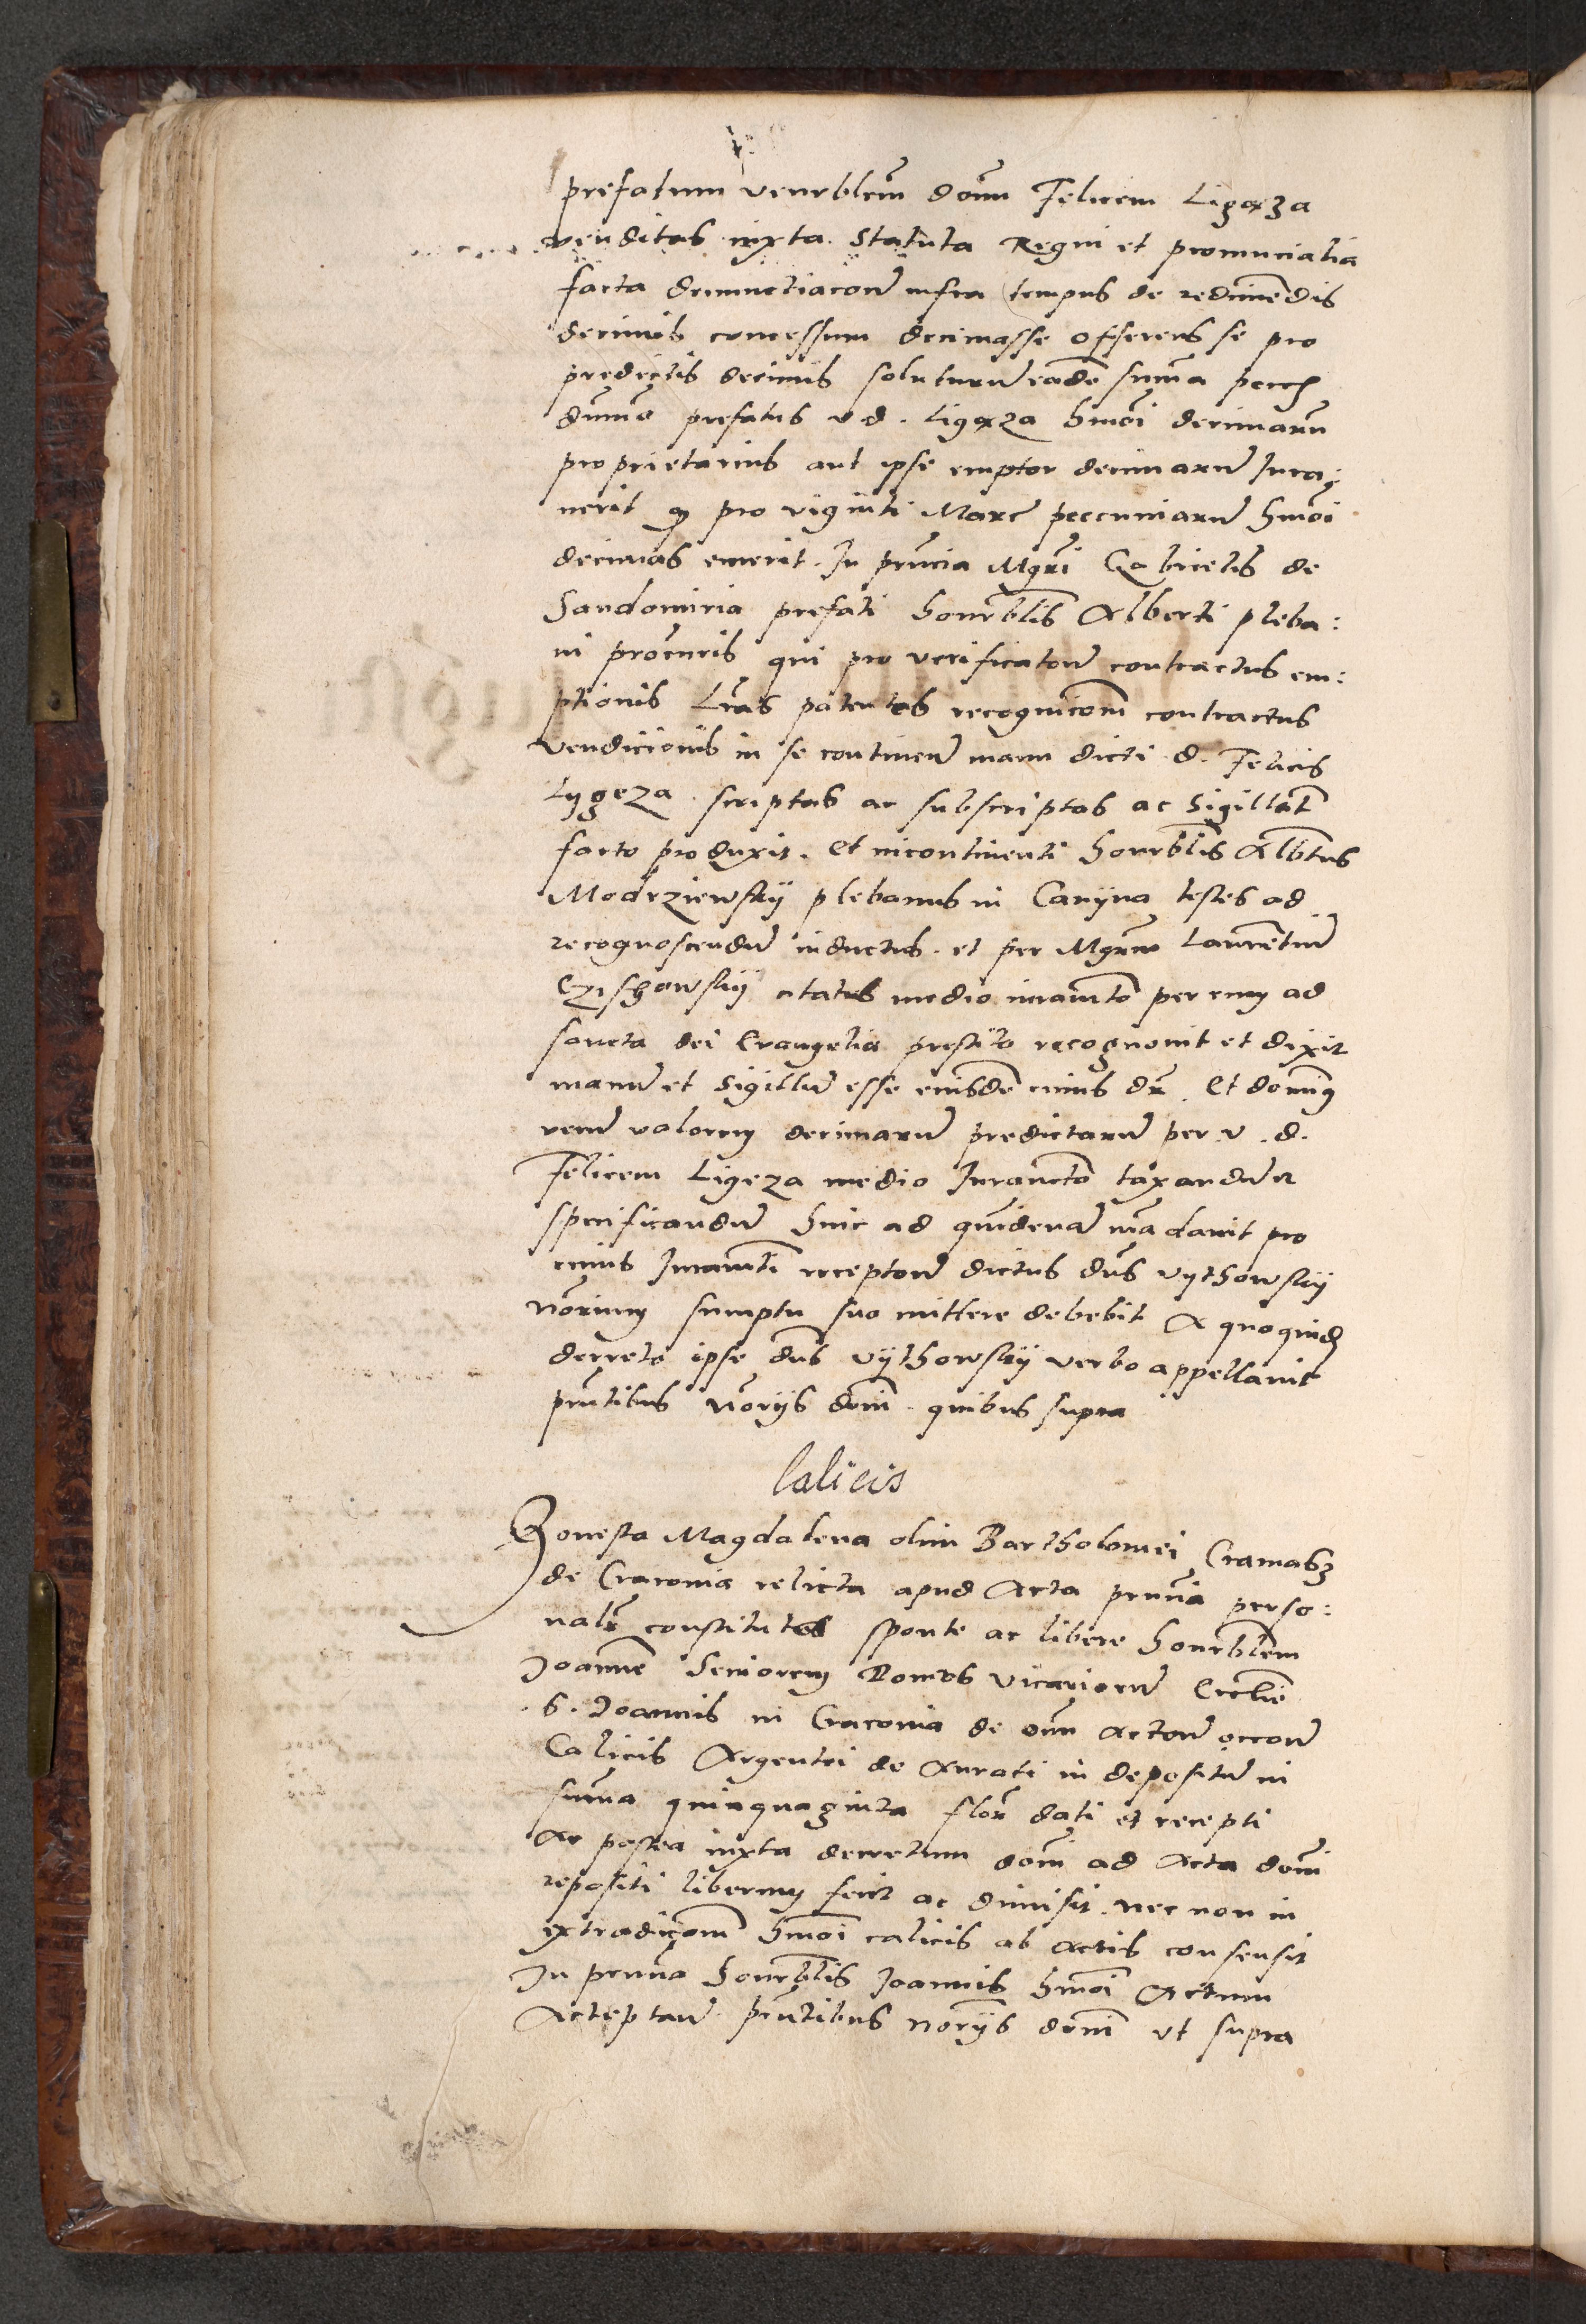 prefatum venrblem domi Felicem Ligęza
venditas iuxta Statuta Regni et prouincialia
facta denunctiacone infra tempus de redimendis
decimis concessum decimasse offerens se pro
predictis decimis soluturum eadem summa
prefatus v d. Ligęza hmoi decimaru
proprietarius aut ipse emptor decimaru Iura,
uerit q pro viginti Marc peccuniaru hmoi
decimas emerit. In pruncia Mgri Gabrielis de
Sandomiria prefati honrblis Alberti pleba:
ni procuris qui pro verificatone contractus em:
ptionis Lras patentes recognicom contractus
vendicionis in se continen manu dicti d. Felicis
Lygeza scriptas ac subscriptas ac Sigillat
facto produxit. Et incontinenti honrblis Albtus
Modrziewskij plebanus in testes ad
recognoscendu inductus. et per Mgrm Laurentiu
citatus medio iuramto per eum ad
sancta dei Evangelia prestito recognouit et dixit
manu et Sigillu esse eiusde cuius dr. Et doming
veru valorem decimaru predictaru per v. d.
Felicem Ligeza medio Iuramto taxandu et
specificandu hinc ad quindena mādauit pro
cuius Iuramti receptone dictus dns vythowskij
norium sumptu suo mittere debebit A quoquid
decreto ipse dns vythowskij verbo appellauit
prntibus norijs domi quibus supra
Calicis
Honesta Magdalena olim Bartholomei
de Cracouia relicta apud Acta prnna perso:
nalr constituta sponte ac libere honrblem
Joanne Seniorem Domus vicarioru Ecclie
S. Joannis in Cracouia de omn actone occone
Calicis Argentei de Aurati in depositu in
summa quinquaginta flor dati et recepti
Ac postea iuxta decretum domi ad Acta domi
repositi liberum fecit ac dimisit. nec non in
extradicom hmoi calicis ab Actis consensit
In prnna honrblis Joannis hmoi Actum
Acceptan prntibus norijs domi vt supra